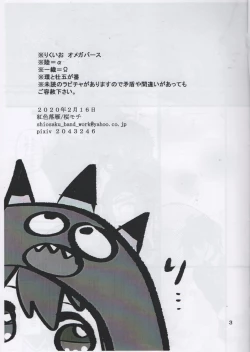 ※りくいお オメガバース
※陸＝α
※一織＝Ω
※環と壮五が番
※未読のラビチャがありますので矛盾や間違いがあっても
ご容赦下さい。
2020年2月16日
紅色落雁/桜モチ
shionaku_hand_work@yahoo.co.jp
pixiv 2043246
り…
3